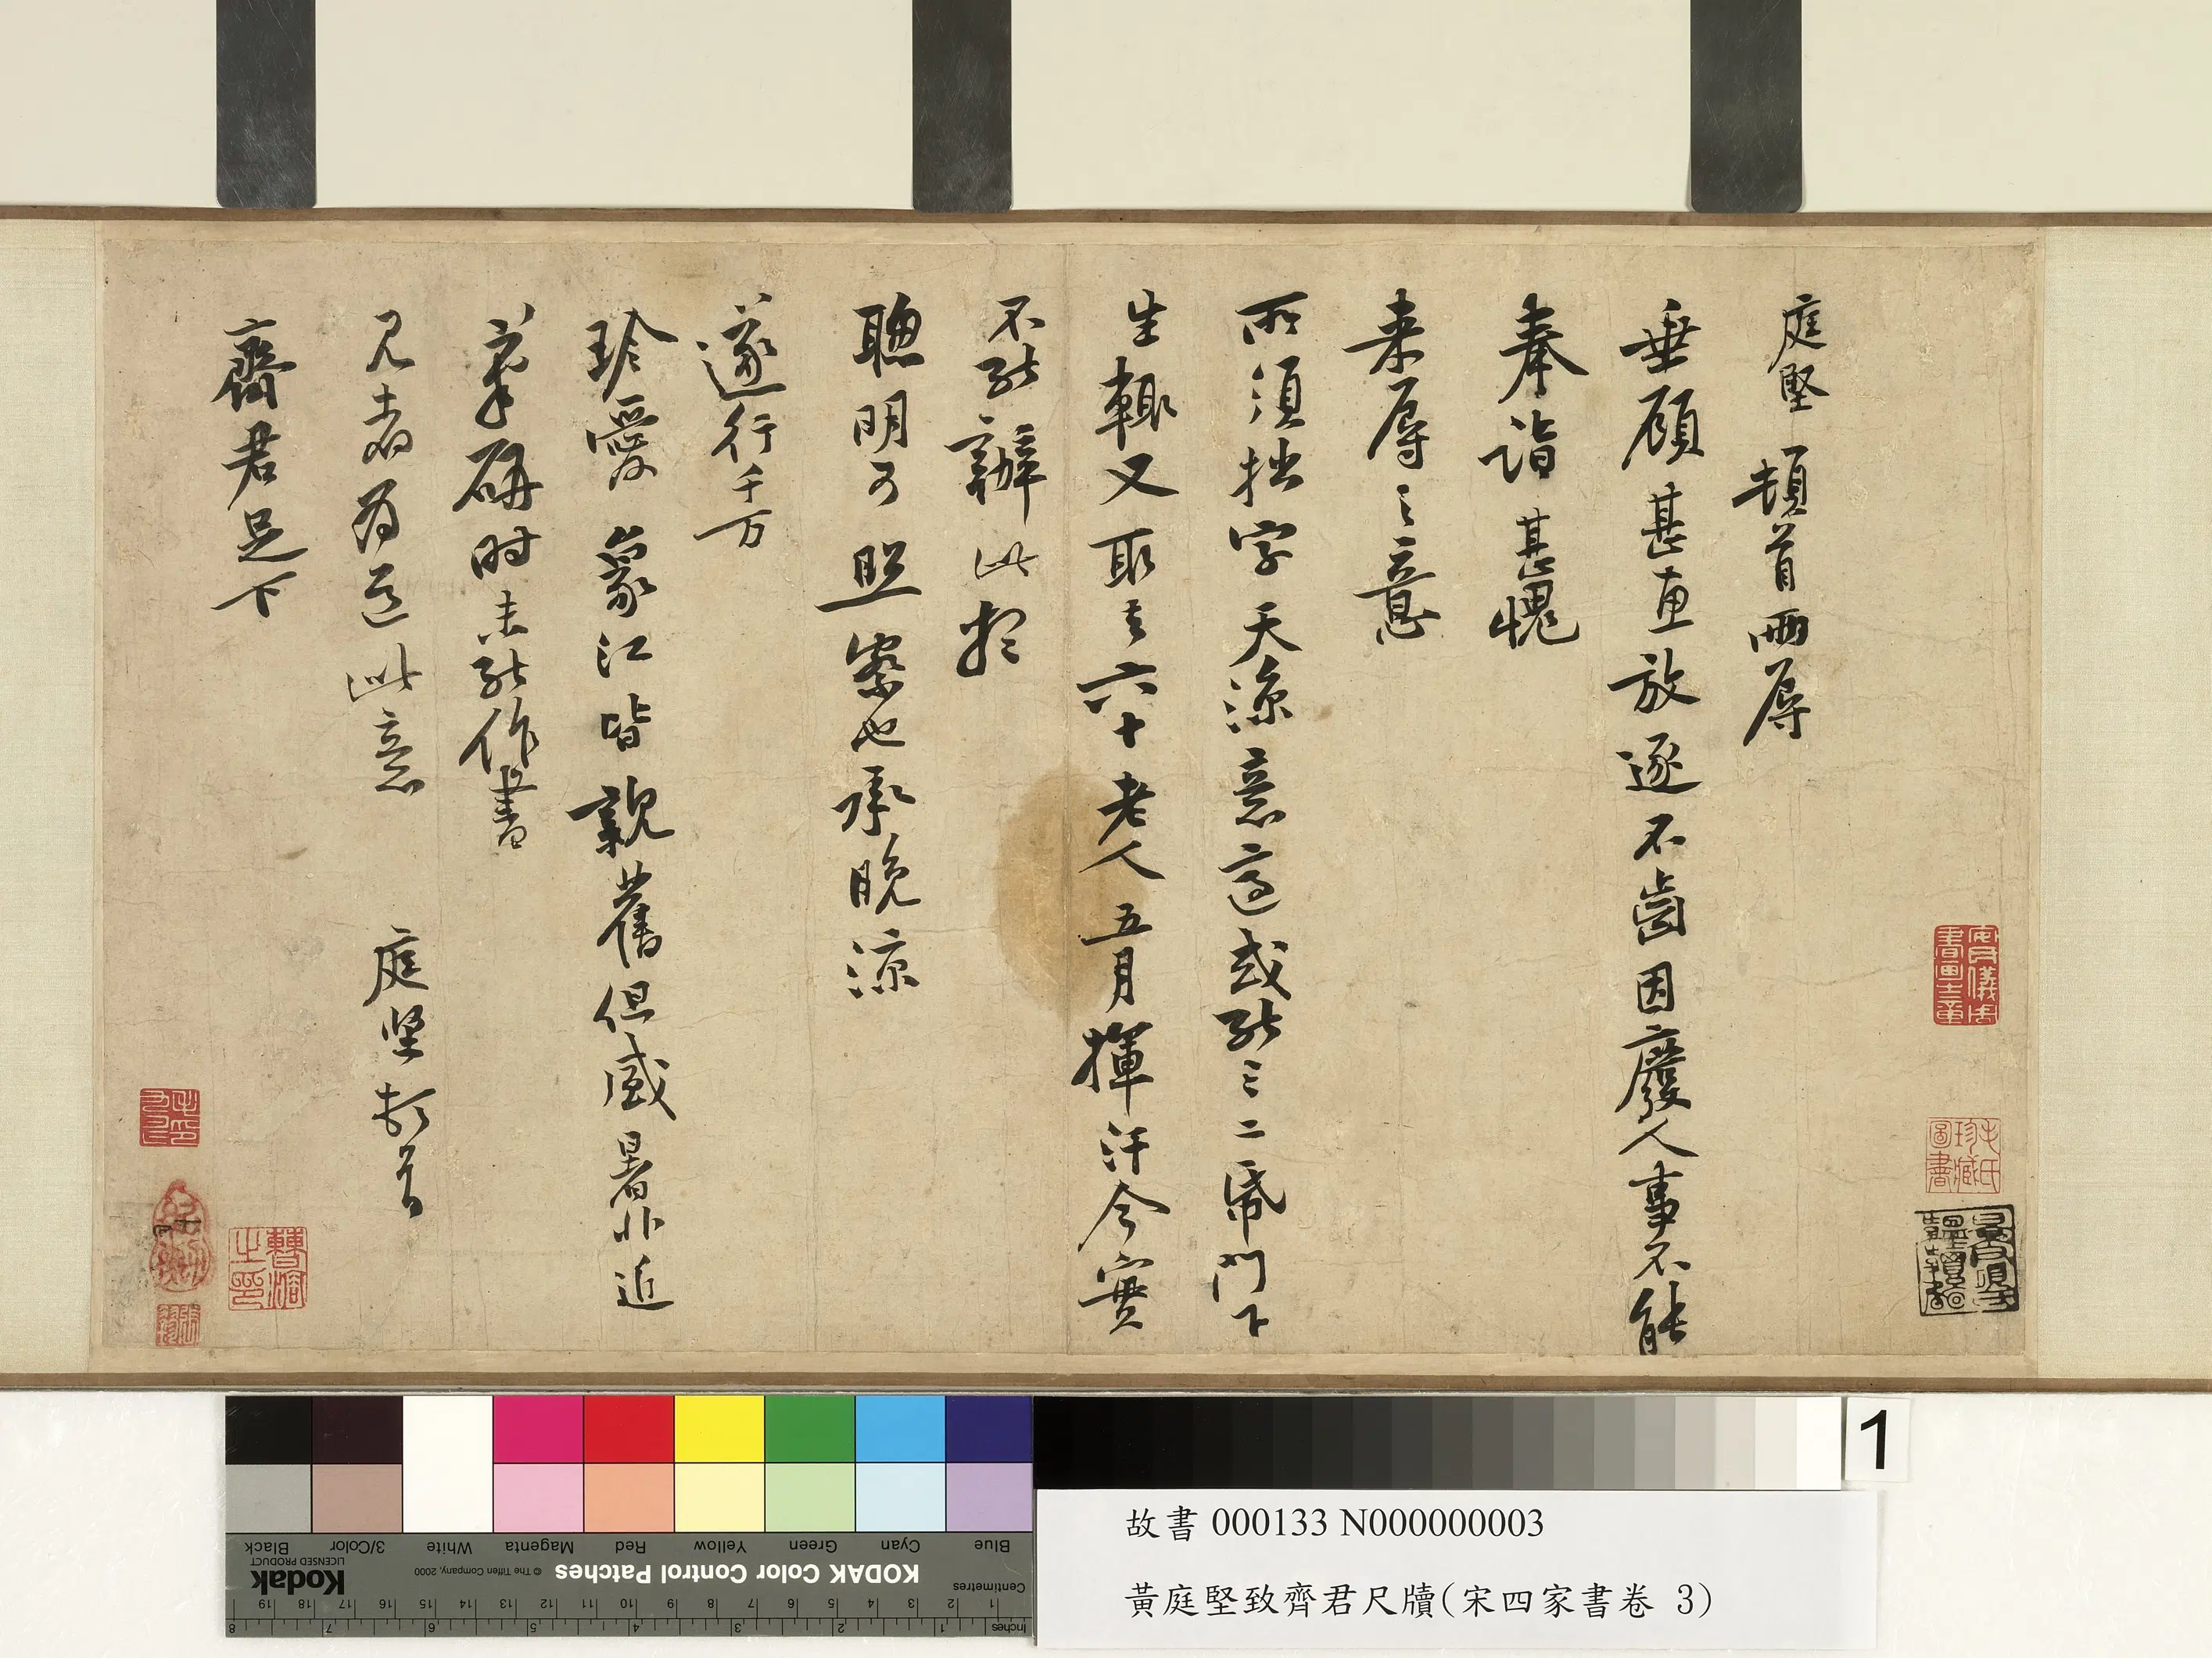 庭堅頓首兩辱
垂顧甚惠放逐不齒因廢人事不能
奉詣甚愧
来辱之意
所須拙字天涼意適或能三二紙門下
生輒又取去六十老人五月揮汗今實
不能辦此想
聰明可照察也承晚涼
遂行千万
珍愛象江皆親舊但盛暑非近
筆研时未能作書
見者為道此意 庭坚頓首
齊君足下
安氏儀周書畫之章
珍藏圖書
曹溶之印
1
故書 000133 N000000003
黃庭堅致齊君尺牘(宋四家書卷 3)
Blue Cyan Green Yellow Red Magenta White 3/Color Black
KODAK Color Control Patches © The Tiffen Company, 2000 Kodak LICENSED PRODUCT
Centimetres
1 2 3 4 5 6 7 8 9 10 11 12 13 14 15 16 17 18 19
Inches 1 2 3 4 5 6 7 8